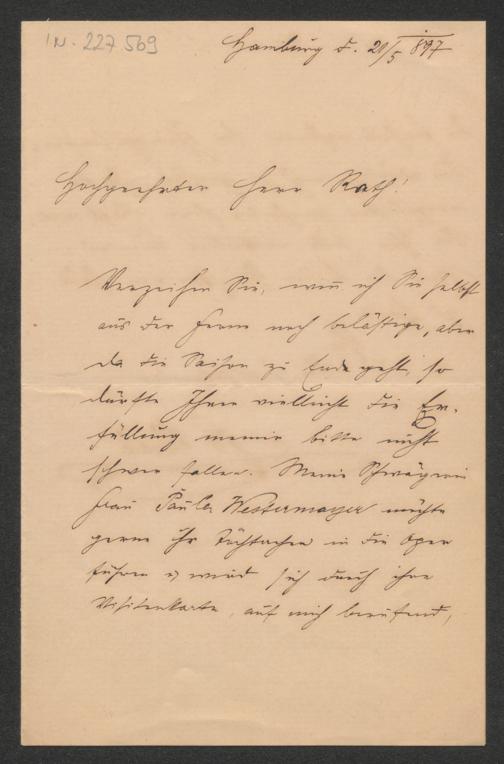 IN. 227 569
Hamburg d. 20/5 1897
Hochgeehrter Herr Rath!
Verzeihen Sie, weñ ich Sie selbst
aus der Ferne noch belästige, aber
da die Saison zu Ende geht, so
dürfte Ihnen vielleicht die Er-
füllung meiner bitte nicht
schwer fallen. Meine Schwägerin
Frau Paula Westermayer möchte
gerne ihr Töchterchen in die Oper
führen u wird sich durch ihre
Visitenkarte, auf mich berufend,